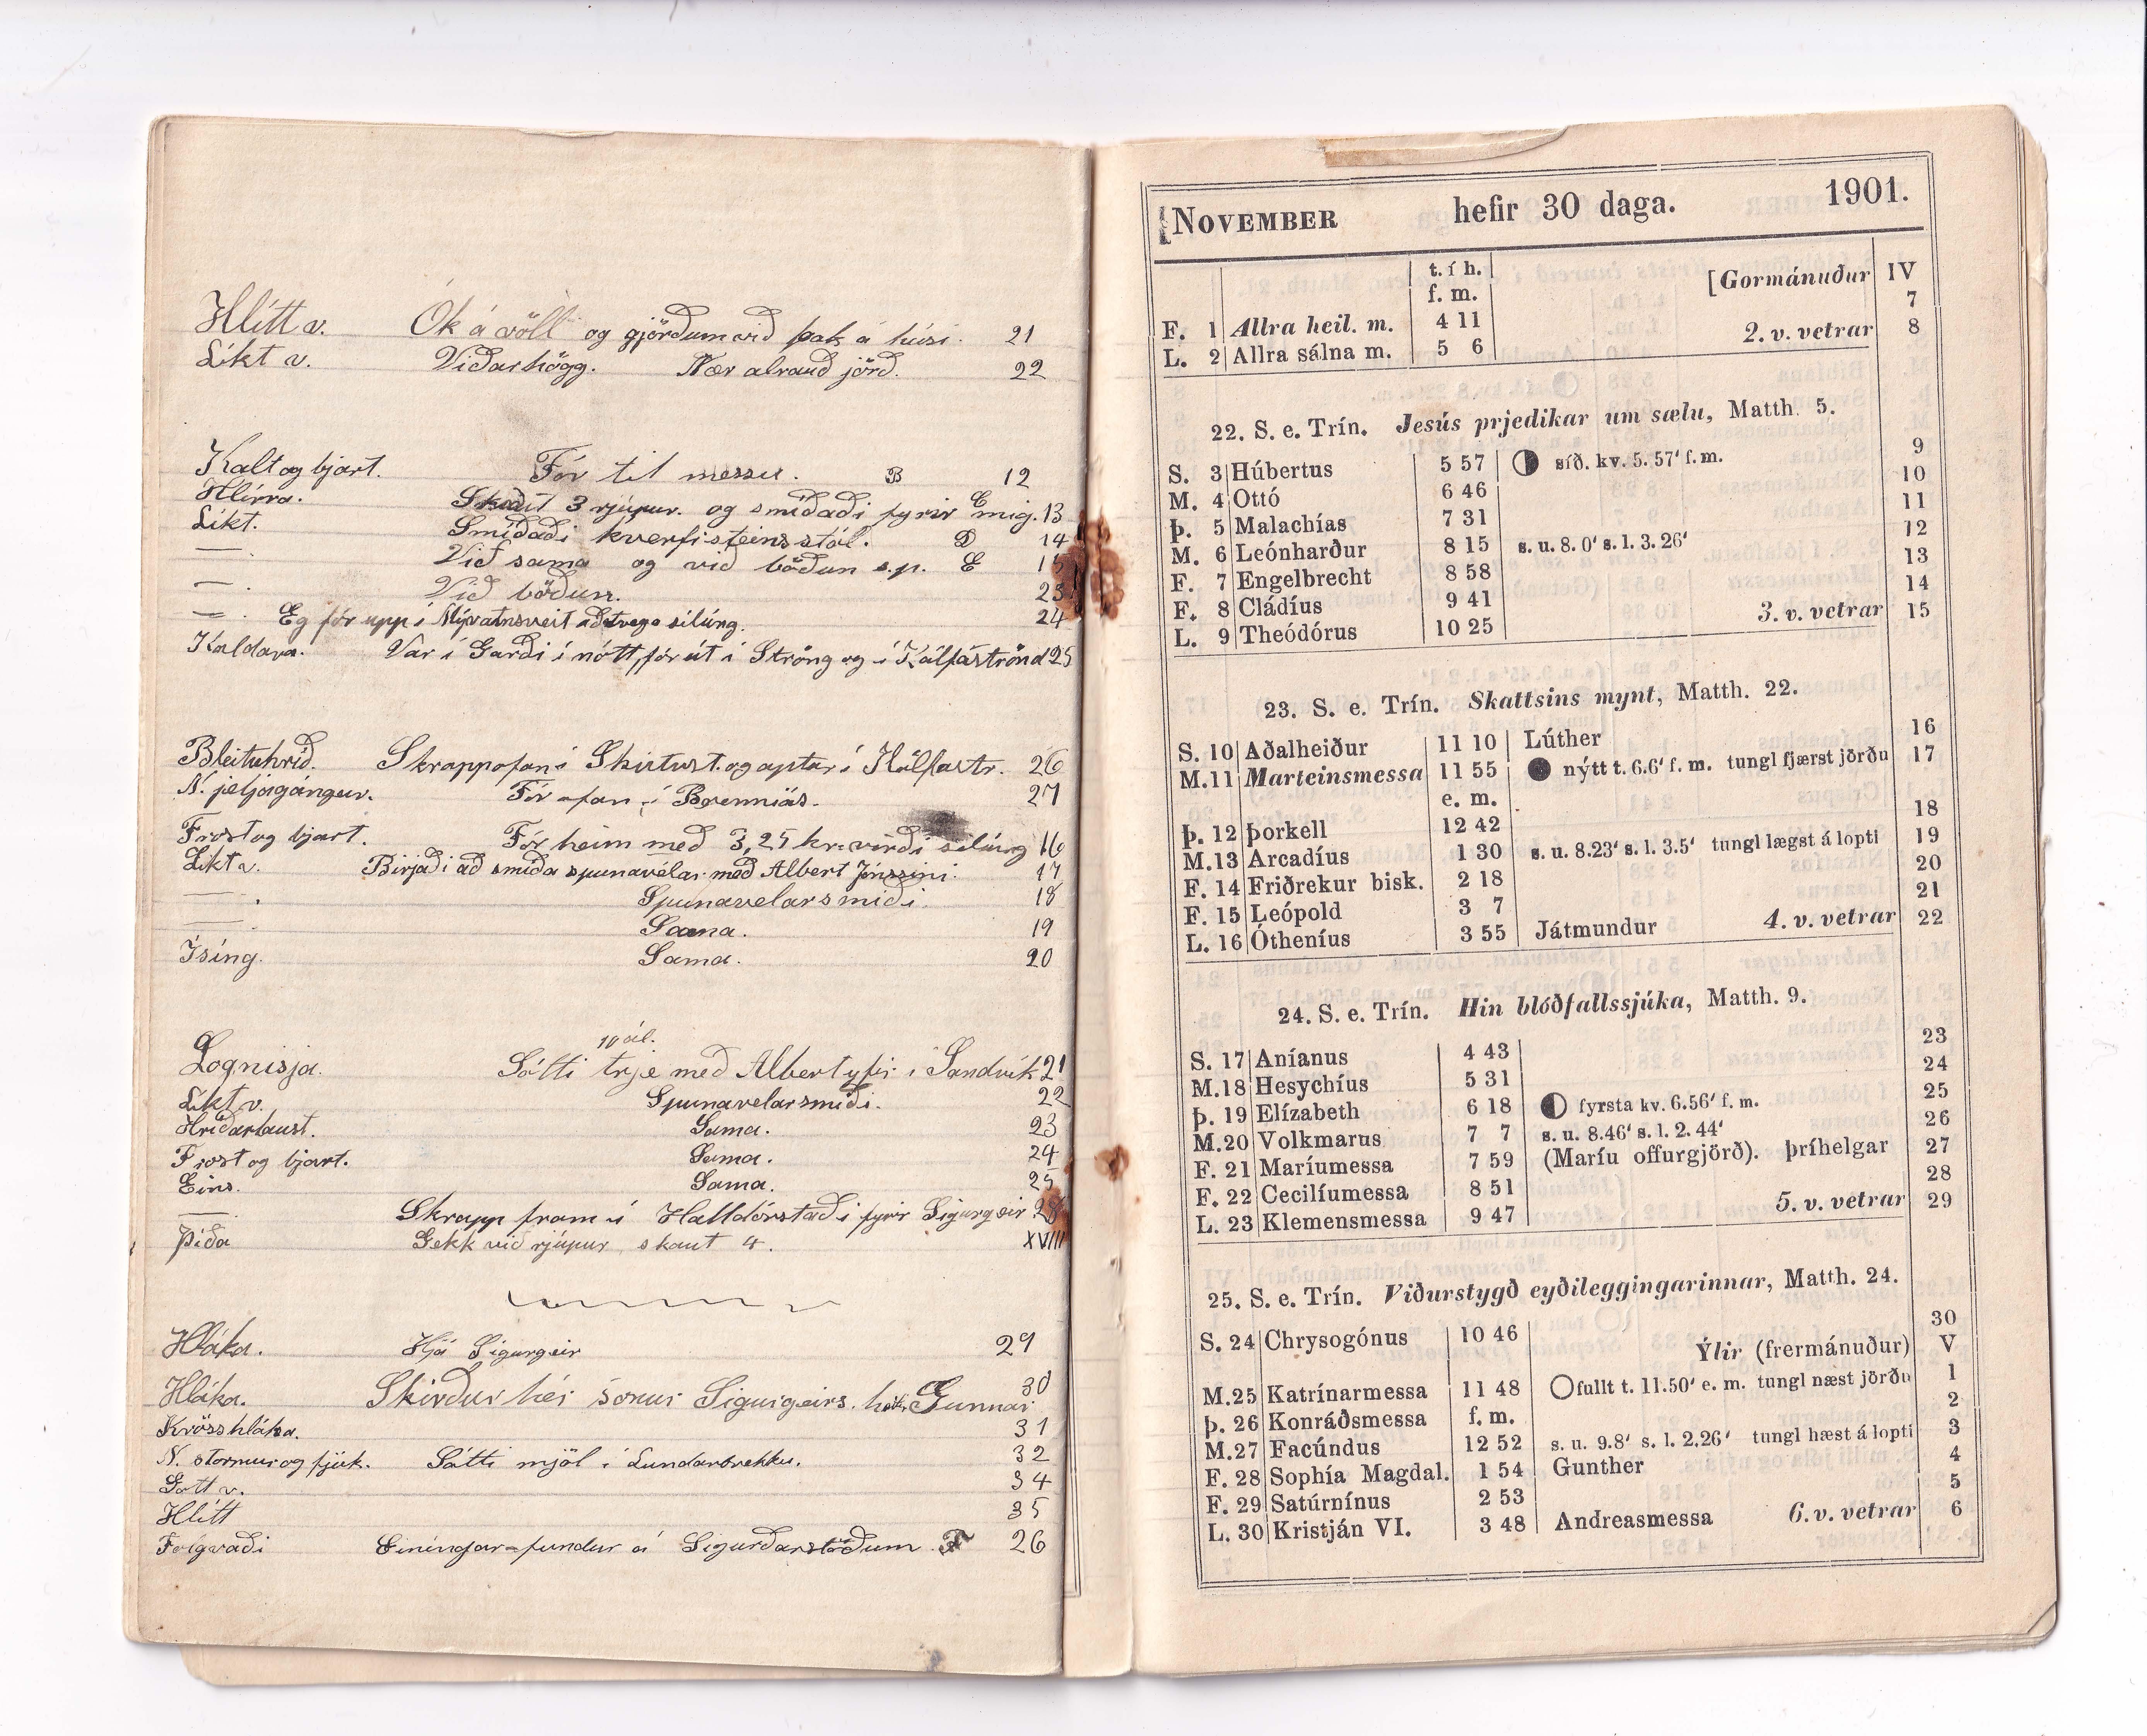 Hlítt v. Ók á völl og gjörðum við þak á húsi. 21
Líkt v. Viðarhögg. Nær alrauð jörð. 22
Kalt og bjart. Fór til messu. B 12
Hlírra. Skaut 3 rjúpur. og smíðaði fyrir mig. C 13
Líkt. Smíðaði hverfisteinsstól. D 14
— Við sama og við böðun s.p. E 15
— Við böðun. 23
— Eg fór upp í Mývatnsveit að útvega silúng. 24
Kaldara. Var í Garði í nótt, fór út í Ströng og í Kálfaströnd 25
Bleituhríð. Skrapp ofan í Skútust. og aptur í Kálfastr. 26
N. fjeljágángur. Fór ofan í Brenniás. 27
Frost og bjart. Fór heim með 3,25 kr. virði silúng 16
Líkt v. Birjaði að smíða spunavélar með Albert Jónssini. 17
— Spunavelarsmiði. 18
— Sama. 19
Ísíng. Sama. 20
10 ál.
Lognisja. Sótti trje með Albert yfir í Sandvík 21
Líkt v. Spunavelarsmiði. 22
Hríðarlaust. Sama. 23
Frost og bjart. Sama. 24
Eins. Sama. 25
— Skrapp fram í Halldórstaði fyrir Sigurgeir 28
Þíða Gekk við rjúpur, skaut 4. XVIII
Hláka. Hjá Sigurgeir 29
Hláka. Skírður hér sonur Sigurgeirs. Gunnar 30
Krösshláka. 31
N. stormur og fjúk. Sótti mjöl í Lundarbrekku. 32
Gott v. 34
Hlítt 35
Einíngar-fundur á Sigurðarstöðum. F 26
NOVEMBER hefir 30 daga. 1901.
t. í h. [Gormánuður IV
f. m. 7
F. 1 Allra heil. m. 4 11 8
L. 2 Allra sálna m. 5 6 2. v. vetrar
22. S. e. Trín. Jesús prjedikar um sælu, Matth. 5.
S. 3 Húbertus 5 57 síð. kv. 5. 57' f. m. 9
M. 4 Ottó 6 46 10
Þ. 5 Malachías 7 31 11
M. 6 Leónharður 8 15 s. u. 8. 0' s. l. 3. 26' 12
F. 7 Engelbrecht 8 58 13
F. 8 Cládíus 9 41 14
L. 9 Theódórus 10 25 3. v. vetrar 15
23. S. e. Trín. Skattsins mynt, Matth. 22.
S. 10 Aðalheiður 11 10 Lúther 16
M. 11 Marteinsmessa 11 55 nýtt t. 6.6' f. m. tungl fjærst jörðu 17
e. m.
Þ. 12 Þorkell 12 42 18
M. 13 Arcadíus 1 30 s. u. 8.23' s. l. 3.5' tungl lægst á lopti 19
F. 14 Friðrekur bisk. 2 18 20
F. 15 Leópold 3 7 21
L. 16 Ótheníus 3 55 Játmundur 4. v. vetrar 22
24. S. e. Trín. Hin blóðfallssjúka, Matth. 9.
S. 17 Aníanus 4 43 23
M. 18 Hesychíus 5 31 24
Þ. 19 Elízabeth 6 18 fyrsta kv. 6.56' f. m. 25
M. 20 Volkmarus 7 7 s. u. 8.46' s. l. 2. 44' 26
F. 21 Maríumessa 7 59 (Maríu offurgjörð). Þríhelgar 27
F. 22 Cecilíumessa 8 51 28
L. 23 Klemensmessa 9 47 5. v. vetrar 29
25. S. e. Trín. Viðurstygð eyðileggingarinnar, Matth. 24.
S. 24 Chrysogónus 10 46 30
Ýlir (frermánuður) V
M. 25 Katrínarmessa 11 48 fullt t. 11.50' e. m. tungl næst jörðu 1
Þ. 26 Konráðsmessa f. m. 2
M. 27 Facúndus 12 52 s. u. 9.8' s. l. 2.26' tungl hæst á lopti 3
F. 28 Sophía Magdal. 1 54 Gunther 4
F. 29 Satúrnínus 2 53 5
L. 30 Kristján VI. 3 48 Andreasmessa 6. v. vetrar 6